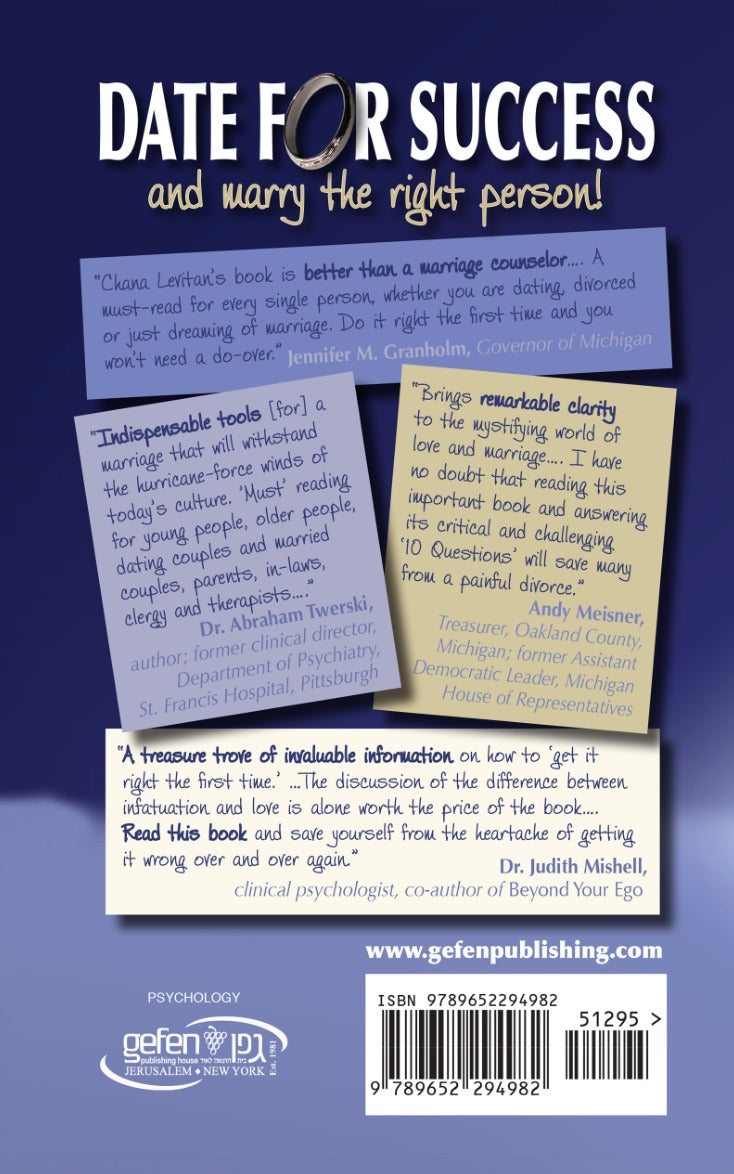 DATE FOR SUCCESS
and marry the right person!
“Chana Levitan’s book is better than a marriage counselor.... A
must-read for every single person, whether you are dating, divorced
or just dreaming of marriage. Do it right the first time and you
won’t need a do-over.” Jennifer M. Granholm, Governor of Michigan
“Indispensable tools [for] a
marriage that will withstand
the hurricane-force winds of
today’s culture. ‘Must’ reading
for young people, older people,
dating couples and married
couples, parents, in-laws,
clergy and therapists....”
Dr. Abraham Twerski,
author; former clinical director,
Department of Psychiatry,
St. Francis Hospital, Pittsburgh
“Brings remarkable clarity
to the mystifying world of
love and marriage.... I have
no doubt that reading this
important book and answering
its critical and challenging
‘10 Questions’ will save many
from a painful divorce.”
Andy Meisner,
Treasurer, Oakland County,
Michigan; former Assistant
Democratic Leader, Michigan
House of Representatives
“A treasure trove of invaluable information on how to ‘get it
right the first time.’ ...The discussion of the difference between
infatuation and love is alone worth the price of the book....
Read this book and save yourself from the heartache of getting
it wrong over and over again.”
Dr. Judith Mishell,
clinical psychologist, co-author of Beyond Your Ego
www.gefenpublishing.com
PSYCHOLOGY
gefen גפן
publishing house בית הוצאה לאור
JERUSALEM ♦ NEW YORK
Est. 1981
ISBN 9789652294982
51295 >
9 789652 294982